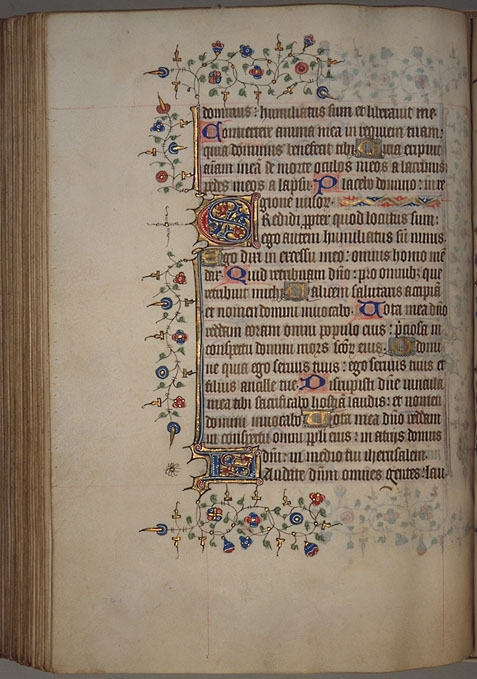 dominus: humiliatus sum et liberauit me
Conuertere anima mea in requiem tuam:
quia dominus benefecit tibi. Quia eripuit
aiam meā de morte oculos meos a lacrimis:
pedes meos a lapsu. Placebo domino: in re
gione uiuor.
Credidi ꝓpter quod locutus sum:
ego autem humiliatus sū nimis.
Ego dixi in excessu meo: omnis homo mē
dax. Quid retribuam dño: pro omnib; que
retribuit michi. Calicem salutaris accipiā
et nomen domini inuocabo. Uota mea dño
reddam coram omni populo eius: p̄ciosa in
conspectu domini mors scōr eius. O domi
ne quia ego seruus tuus: ego seruus tuus et
filius ancille tue. Disrupisti dñe uincula
mea tibi sacrificabo hostiā laudis: et nomen
domini inuocabo. Uota mea dño reddam
in conspectu omnī ppli eius: in atrijs domus
dñi: in medio tui iherusalem.
Laudate dñm omnes gentes: lau